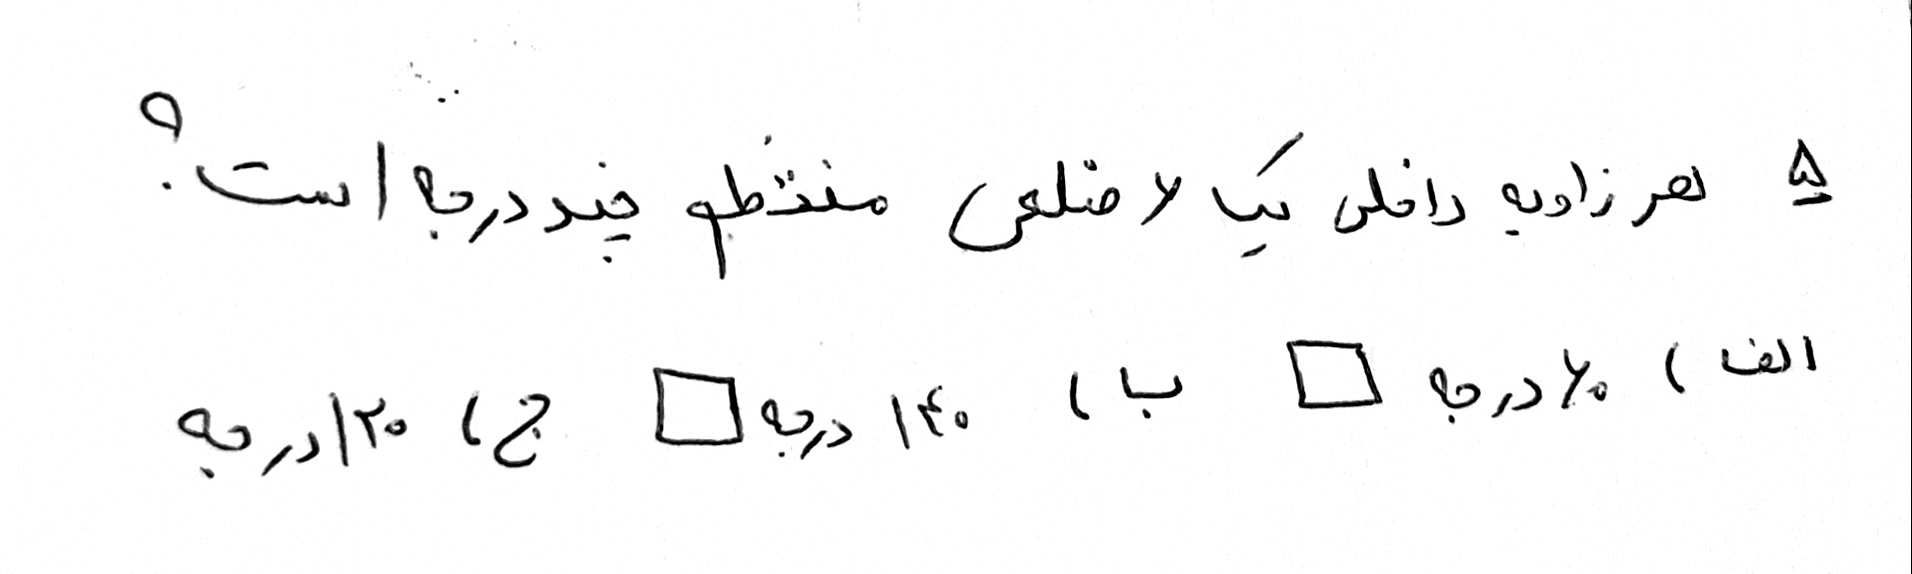 ۵ هر زاویه داخلی یک ۶ ضلعی منتظم چند درجه است؟
الف) ۶۰ درجه □ ب) ۱۴۰ درجه □ ج) ۱۲۰ درجه